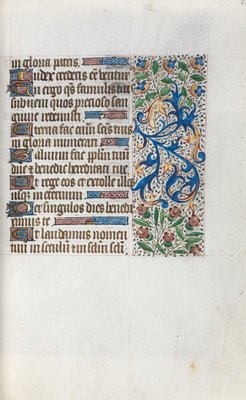 in gloria patris.
Iudex crederis ee ventur
Te ergo qs famulis tuis
subveni quos precioso san
guine redemisti.
Eterna fac cum scis tuis
in gloria numerari
Salvum fac pplm tuu
dne et benedic hereditati tue
Et rege eos et extolle illos
usqz in eternum
Per singulos dies benedi
cimus te
Et laudamus nomen
tuu in seculu et in sclm scli